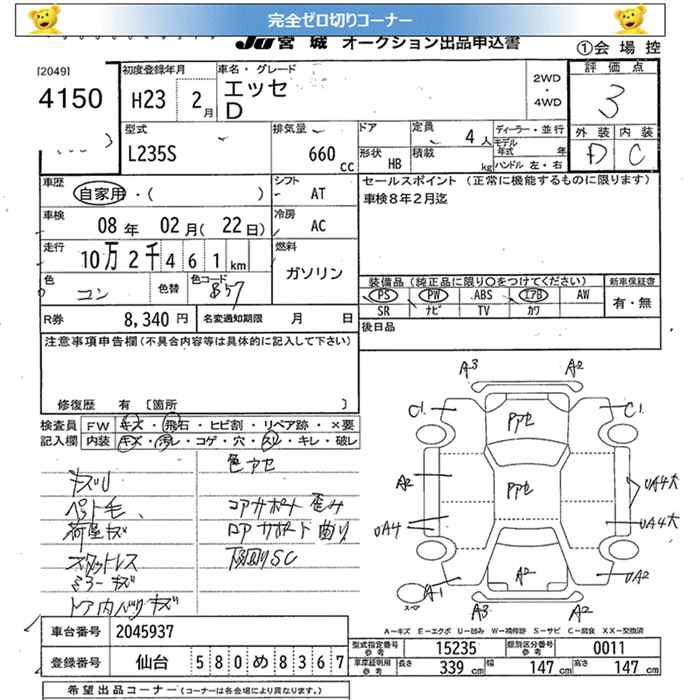 完全ゼロ切りコーナー
Ju 宮城 オークション出品申込書
①会場控
[2049]
4150
初度登録年月
H23 2月
車名・グレード
エッセ
D
2WD
・
4WD
評価点
3
外装 内装
D C
型式
L235S
排気量
660 cc
ドア
形状 HB
定員 4人
積載 kg
ディーラー・並行
モデル年式 年
ハンドル 左・右
車歴
自家用・( )
シフト
AT
セールスポイント (正常に機能するものに限ります)
車検8年2月迄
車検
08年 02月(22日)
冷房
AC
走行
10万2千461km
燃料
ガソリン
色
コン
色替
色コード
B57
装備品(純正品に限り○をつけてください)
PS PW ABS エアB AW
SR ナビ TV カワ
新車保証書
有・無
R券 8,340円
名変通知期限 月 日
後日品
注意事項申告欄(不具合内容等は具体的に記入して下さい)
修復歴 有 [箇所 ]
検査員
記入欄
FW キズ・飛石・ヒビ割・リペア跡・×要
内装 キズ・汚レ・コゲ・穴・スレ・キレ・破レ
色アセ
ペット毛
荷室キズ
スタッドレス
ミラーキズ
ドア内バリキズ
コアサポート歪み
ロアサポート曲り
下廻りSC
A3 A2
C1 C1
アアセ
A2
アアセ
UA4大
UA4
UA4大
A1
A2
UA2
スペア
A3 A2
A−キズ E−エクボ U−凹み W−補修跡 S−サビ C−腐食 XX−交換済
車台番号 2045937
登録番号 仙台 580め8367
型式指定番号 参考 15235
類別区分番号 参考 0011
車庫証明用 参考 長さ 339cm 幅 147cm 高さ 147cm
希望出品コーナー(コーナーは各会場により異なります。)